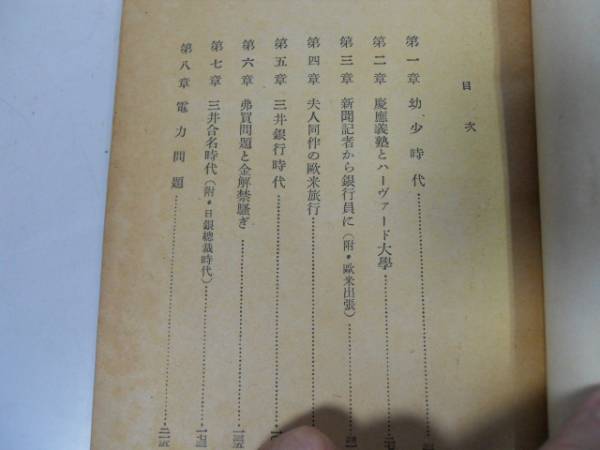 目次
第一章 幼少時代
第二章 慶應義塾とハーヴァード大學
第三章 新聞記者から銀行員に（附・歐米出張）
第四章 夫人同伴の歐米旅行
第五章 三井銀行時代
第六章 弗買問題と金解禁騷ぎ 一三五
第七章 三井合名時代（附・日銀總裁時代）
第八章 電力問題 二一五